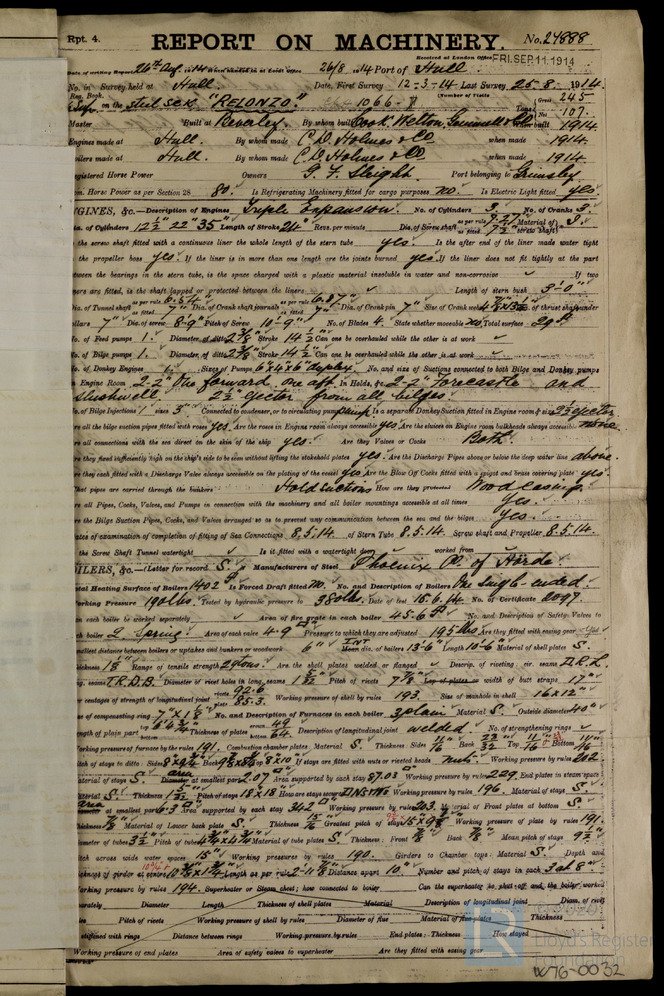 Rpt. 4. REPORT ON MACHINERY. No. 24888
Received at London Office FRI. SEP. 11. 1914
Date of writing Report 26th Aug. 1914 When handed in at Local Office 26/8 1914 Port of Hull
No. in Survey held at Hull Date, First Survey 12-3-14 Last Survey 25-8- 1914
Reg. Book. (Number of Visits
on the Steel Sck "RELONZO" Tons Gross 245
Net 107
Master Built at Beverley By whom built Cook, Welton, Gemmell & Co When built 1914
Engines made at Hull By whom made C. D. Holmes & Co when made 1914
Boilers made at Hull By whom made C. D. Holmes & Co when made 1914
Registered Horse Power Owners G. F. Sleight Port belonging to Grimsby
Nom. Horse Power as per Section 28 80 Is Refrigerating Machinery fitted for cargo purposes No. Is Electric Light fitted yes
ENGINES, &c.—Description of Engines Triple Expansion No. of Cylinders 3 No. of Cranks 3
Dia. of Cylinders 12½ 22" 35" Length of Stroke 24" Revs. per minute Dia. of Screw shaft as per rule 7-27" Material of screw shaft
as fitted 7½"
the screw shaft fitted with a continuous liner the whole length of the stern tube yes. Is the after end of the liner made water tight
the propeller boss yes If the liner is in more than one length are the joints burned yes If the liner does not fit tightly at the part
between the bearings in the stern tube, is the space charged with a plastic material insoluble in water and non-corrosive If two
liners are fitted, is the shaft lapped or protected between the liners Length of stern bush 3'-0"
Dia. of Tunnel shaft as per rule 6.54" as fitted 7" Dia. of Crank shaft journals as per rule 6.87" as fitted 7" Dia. of Crank pin 7" Size of Crank webs Dia. of thrust shaft under
collars 7" Dia. of screw 8'-9" Pitch of Screw 10'-9" No. of Blades 4. State whether moveable No. Total surface 29 ft
No. of Feed pumps 1. Diameter of ditto 2⅜ Stroke 14½ Can one be overhauled while the other is at work
No. of Bilge pumps 1. Diameter of ditto 2⅜ Stroke 14½ Can one be overhauled while the other is at work
No. of Donkey Engines 1. Sizes of Pumps 6"x4"x6" duplex No. and size of Suctions connected to both Bilge and Donkey pumps
Engine Room 2-2" One forward, one aft In Holds, &c. 2-2" Forecastle and
slushwell 2½ ejector from all bilges
No. of Bilge Injections 1 sizes 3" Connected to condenser, or to circulating pump pump Is a separate Donkey Suction fitted in Engine room & size 2½ ejector
Are all the bilge suction pipes fitted with roses yes. Are the roses in Engine room always accessible yes Are the sluices on Engine room bulkheads always accessible none
Are all connections with the sea direct on the skin of the ship yes. Are they Valves or Cocks Both.
Are they fixed sufficiently high on the ship's side to be seen without lifting the stokehold plates yes. Are the Discharge Pipes above or below the deep water line above.
Are they each fitted with a Discharge Valve always accessible on the plating of the vessel yes. Are the Blow Off Cocks fitted with a spigot and brass covering plate yes.
What pipes are carried through the bunkers Hold Suctions How are they protected Wood casing.
Are all Pipes, Cocks, Valves, and Pumps in connection with the machinery and all boiler mountings accessible at all times Yes.
Are the Bilge Suction Pipes, Cocks, and Valves arranged so as to prevent any communication between the sea and the bilges Yes.
Dates of examination of completion of fitting of Sea Connections 8.5.14. of Stern Tube 8.5.14. Screw shaft and Propeller 8.5.14.
Is the Screw Shaft Tunnel watertight Is it fitted with a watertight door worked from
BOILERS, &c.—(Letter for record S.) Manufacturers of Steel Phoenix Co. of Hörde.
Total Heating Surface of Boilers 1402 Is Forced Draft fitted No. No. and Description of Boilers One Single ended.
Working Pressure 190 lbs. Tested by hydraulic pressure to 380 lbs. Date of test 15.6.14 No. of Certificate 2097
Can each boiler be worked separately Area of fire grate in each boiler 45-6 No. and Description of Safety Valves to
each boiler 2 Spring. Area of each valve 4-9 Pressure to which they are adjusted 195 lbs Are they fitted with easing gear yes
Smallest distance between boilers or uptakes and bunkers or woodwork 6" INT Mean dia. of boilers 13'-6" Length 10'-6" Material of shell plates S.
Thickness Range of tensile strength Are the shell plates welded or flanged Descrip. of riveting: cir. seams D.R.L.
long. seams T.R.D.B. Diameter of rivet holes in long. seams Pitch of rivets 7⅞ Lap of plates or width of butt straps 17"
Percentages of strength of longitudinal joint rivets 92.6 plate 85.3 Working pressure of shell by rules 193. Size of manhole in shell 16"x12"
Size of compensating ring No. and Description of Furnaces in each boiler 3 plain Material S. Outside diameter 40"
Length of plain part Thickness of plates Description of longitudinal joint welded. No. of strengthening rings
Working pressure of furnace by the rules 191. Combustion chamber plates: Material S. Thickness: Sides Back Top Bottom
Pitch of stays to ditto: Sides Back Top If stays are fitted with nuts or riveted heads nuts Working pressure by rules 202
Material of stays S. area at smallest part 2.07 Area supported by each stay 87.03 Working pressure by rules 229. End plates in steam space:
Material S. Thickness Pitch of stays 18"x18" How are stays secured Working pressure by rules 196. Material of stays S.
area at smallest part 6.3 Area supported by each stay 342 Working pressure by rules 203. Material of Front plates at bottom S.
Thickness Material of Lower back plate S. Thickness Greatest pitch of stays Working pressure of plate by rules 191.
Diameter of tubes 3½ Pitch of tubes Material of tube plates S. Thickness: Front Back Mean pitch of stays
Pitch across wide water spaces 15" Working pressures by rules 190. Girders to Chamber tops: Material S. Depth and
thickness of girder at centre Length as per rule Distance apart 10" Number and pitch of stays in each
Working pressure by rules 194. Superheater or Steam chest; how connected to boiler Can the superheater be shut off and the boiler worked
separately Diameter Length Thickness of shell plates Material Description of longitudinal joint Diam. of rivet
holes Pitch of rivets Working pressure of shell by rules Diameter of flue Material of flue plates Thickness
If stiffened with rings Distance between rings Working pressure by rules End plates: Thickness How stayed
Working pressure of end plates Area of safety valves to superheater Are they fitted with easing gear
Lloyd's Register
Foundation
W76-0032